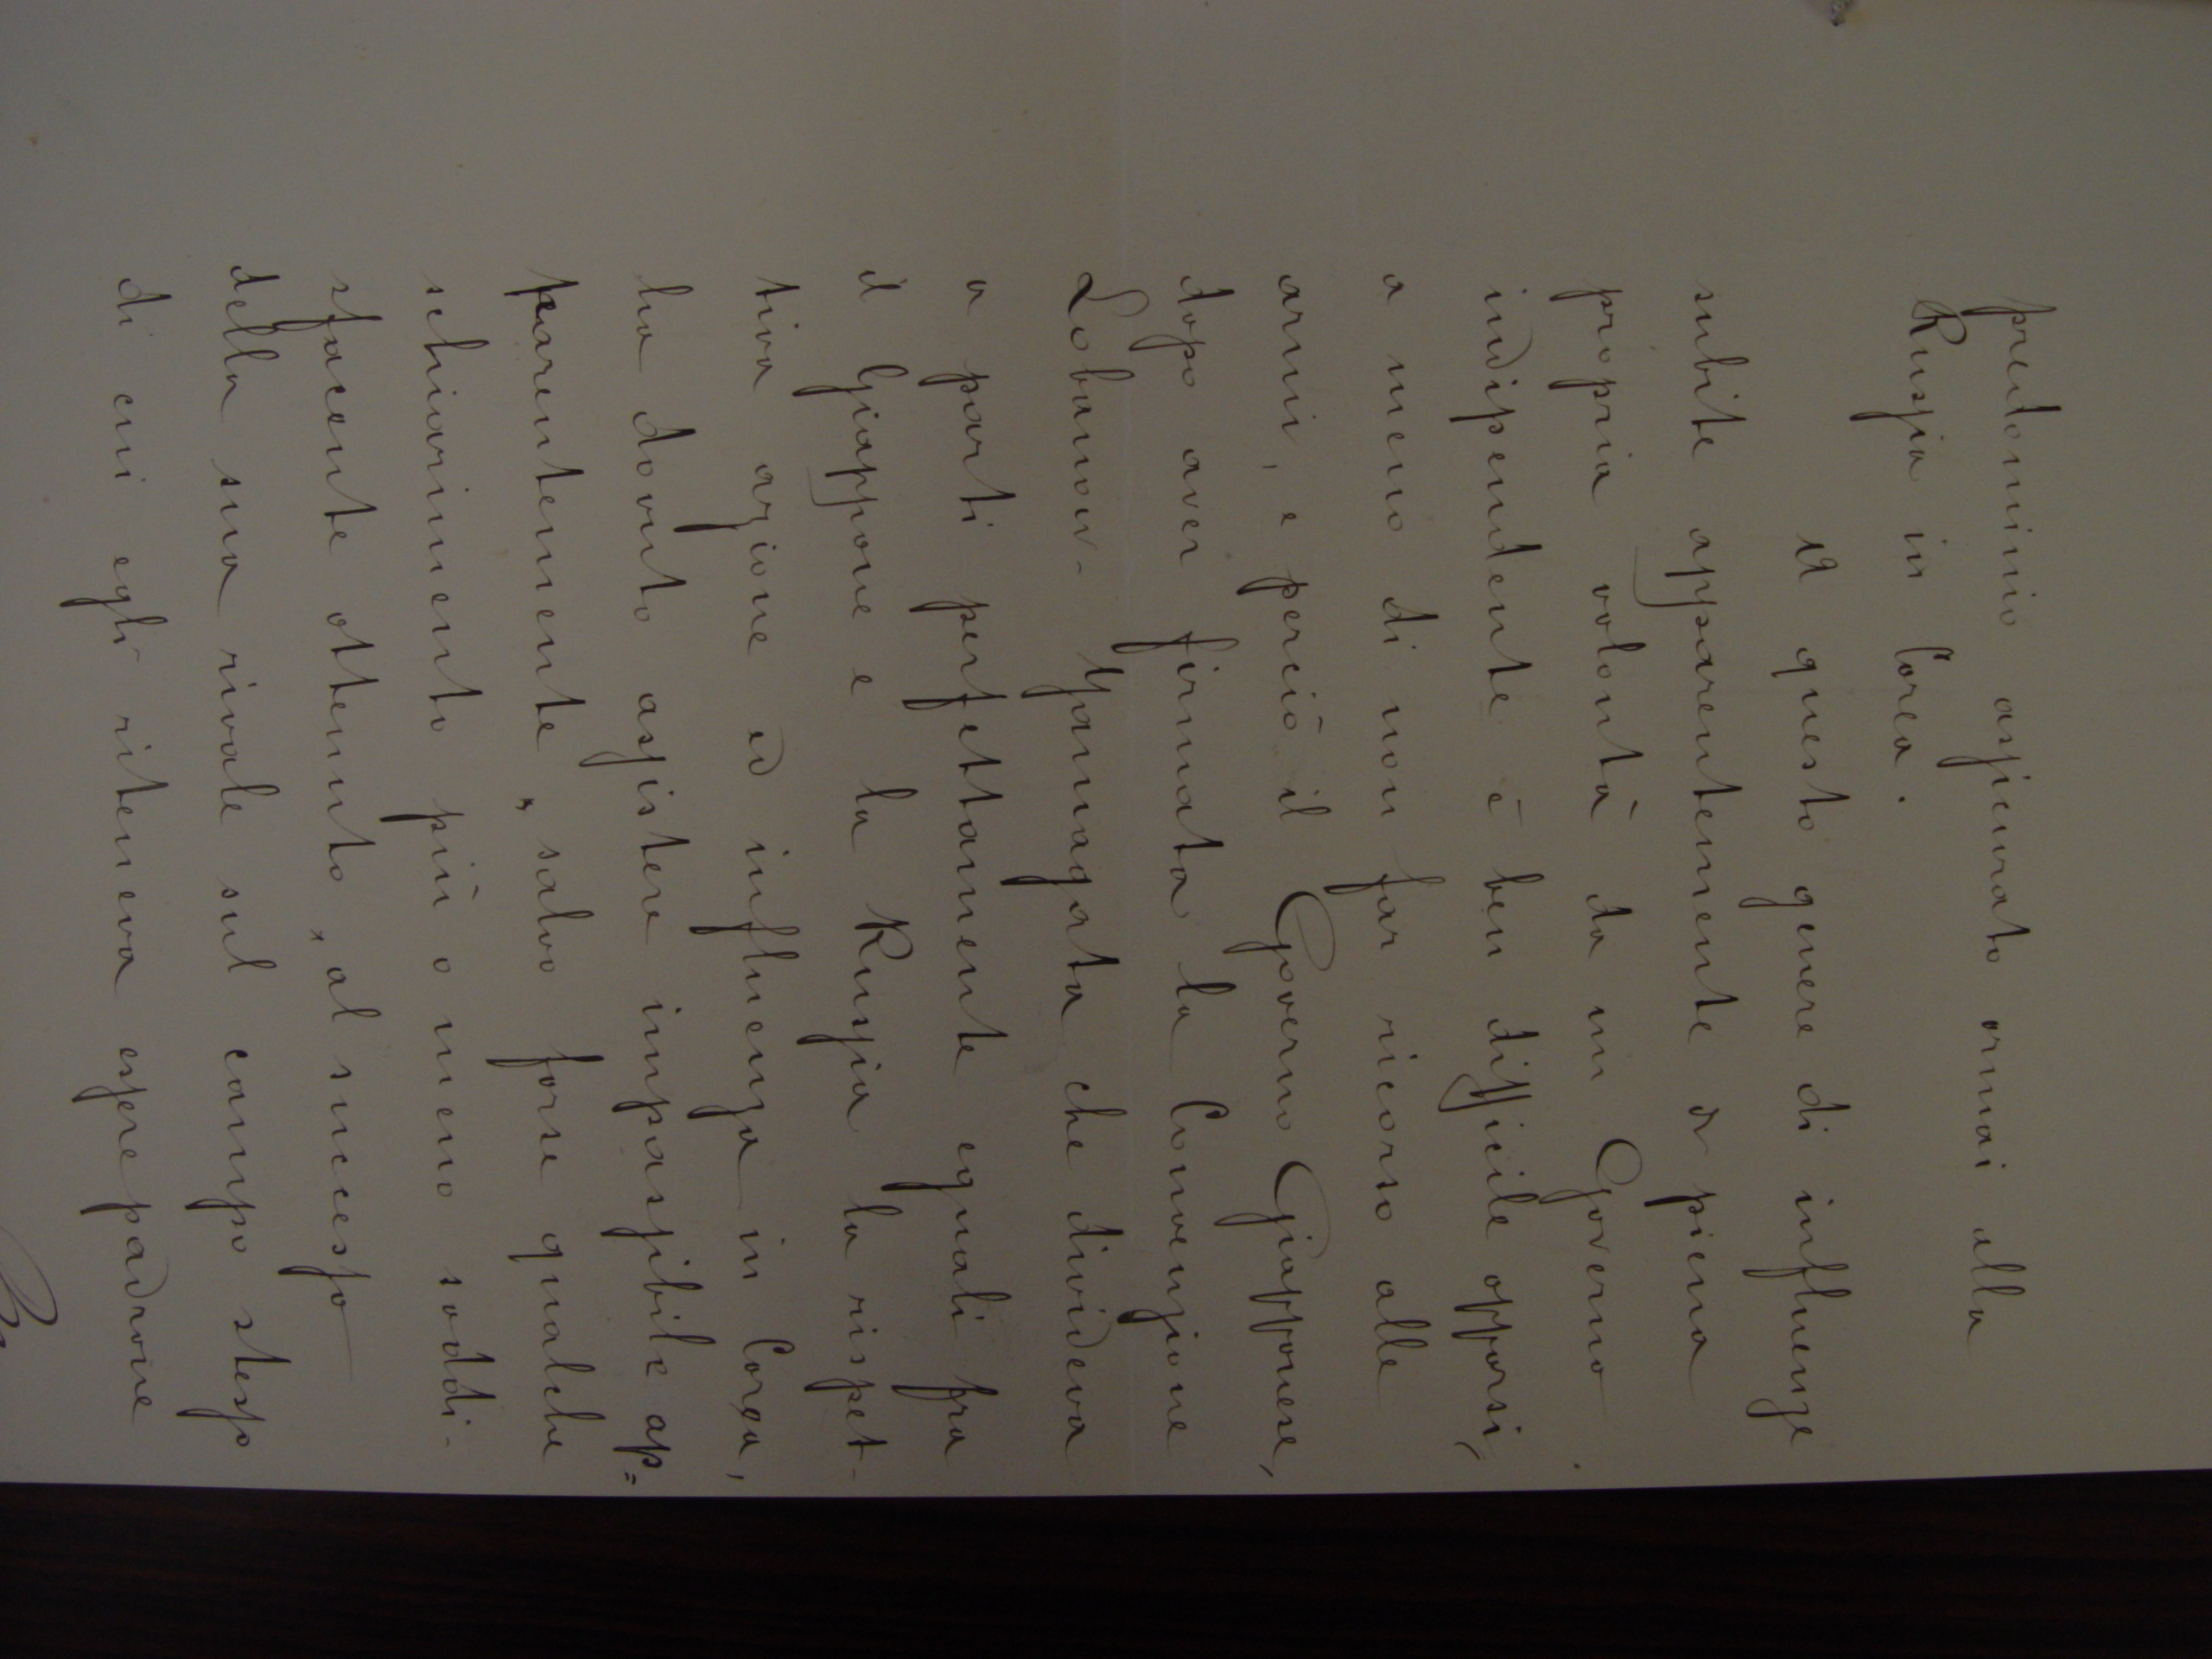 predominio assicurato ormai alla
Russia in Corea.
A questo genere di influenze
subite apparentemente di piena
propria volontà da un Governo
indipendente è ben difficile opporsi,
a meno di non far ricorso alle
armi, e perciò il Governo Giapponese,
dopo aver firmata la Convenzione
Lobanow-Yamagata che divideva
a parti perfettamente eguali fra
il Giappone e la Russia la rispet-
tiva azione ed influenza in Corea,
ha dovuto assistere impassibile ap=
parentemente, salvo forse qualche
schiarimento più o meno soddi-
sfacente ottenuto, al successo
della sua rivale sul campo stesso
di cui egli riteneva essere padrone